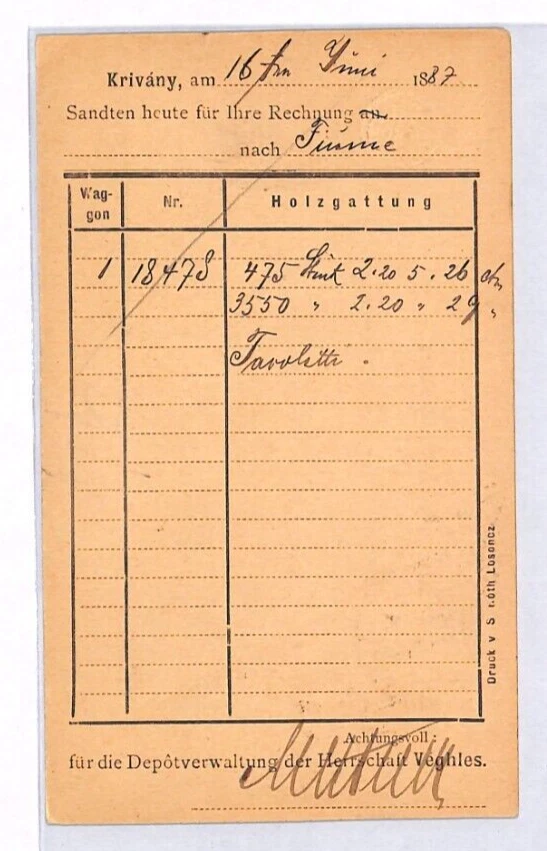 Krivány, am 16ten Juni 1887
Sandten heute für Ihre Rechnung an
nach Fiume
Wag-
gon
Nr.
Holzgattung
1 18478 475 Stück 2.20 5. 26 ctm
3550 " 2.20 " 29 "
Tavolette.
Druck v S Róth Losoncz
Achtungsvoll:
für die Depôtverwaltung der Herrschaft Véghles.